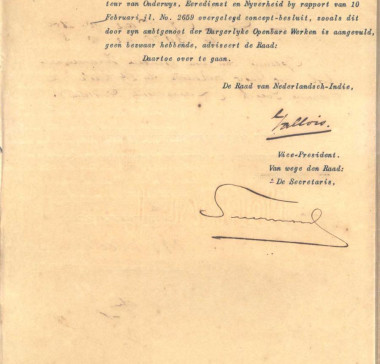 teur van Onderwys, Eeredienst en Nyverheid by rapport van 10
Februari jl. No. 2659 overgelegd concept-besluit, zooals dit
door zyn ambtgenoot der Burgerlyke Openbare Werken is aangevuld,
geen bezwaar hebbende, adviseert de Raad:
Daartoe over te gaan.
De Raad van Nederlandsch-Indie,
Vice-President.
Van wege den Raad:
De Secretaris,